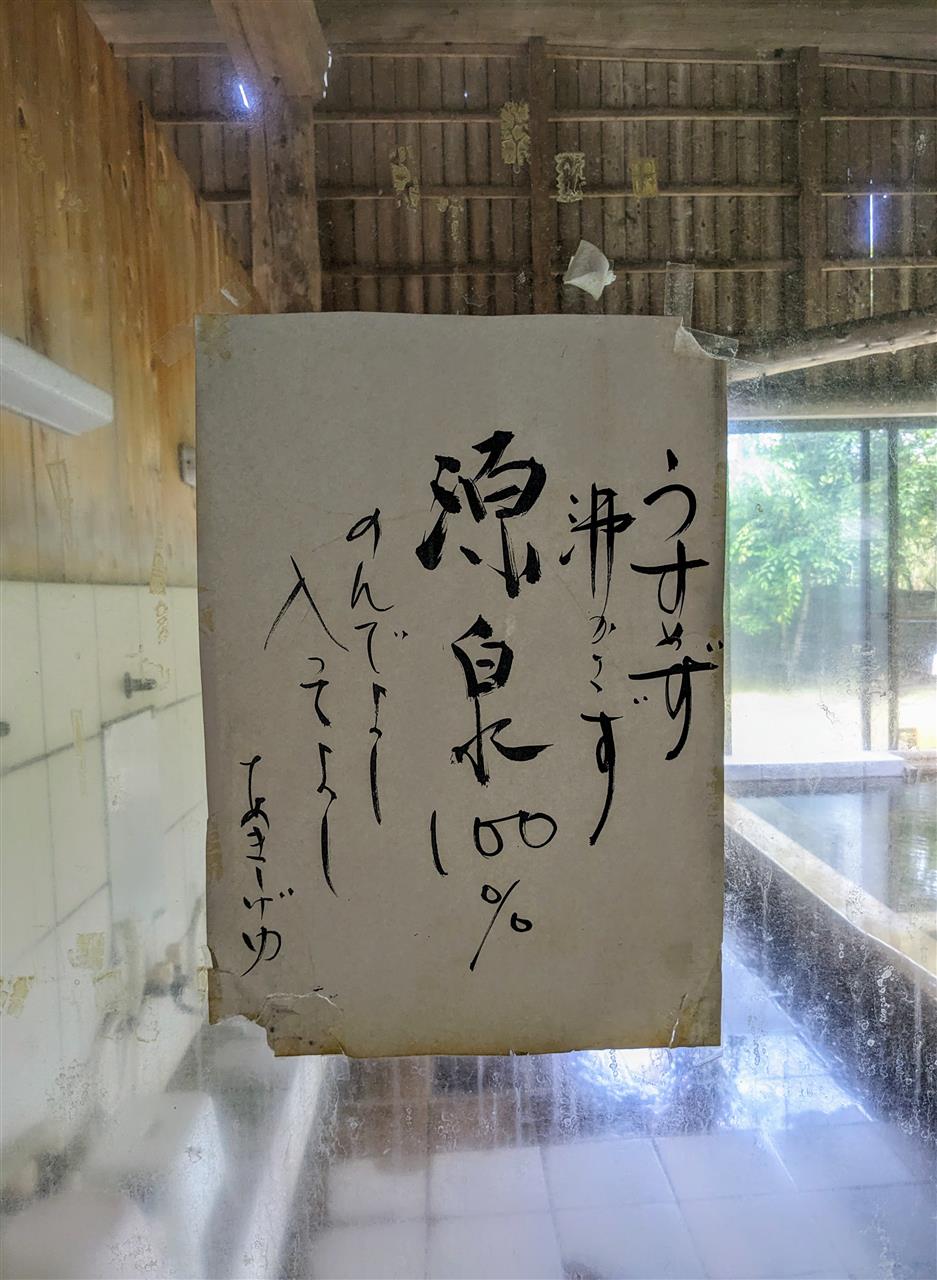 うすめず
沸かさず
源泉100%
のんでよし
入ってよし
あきしげゆ